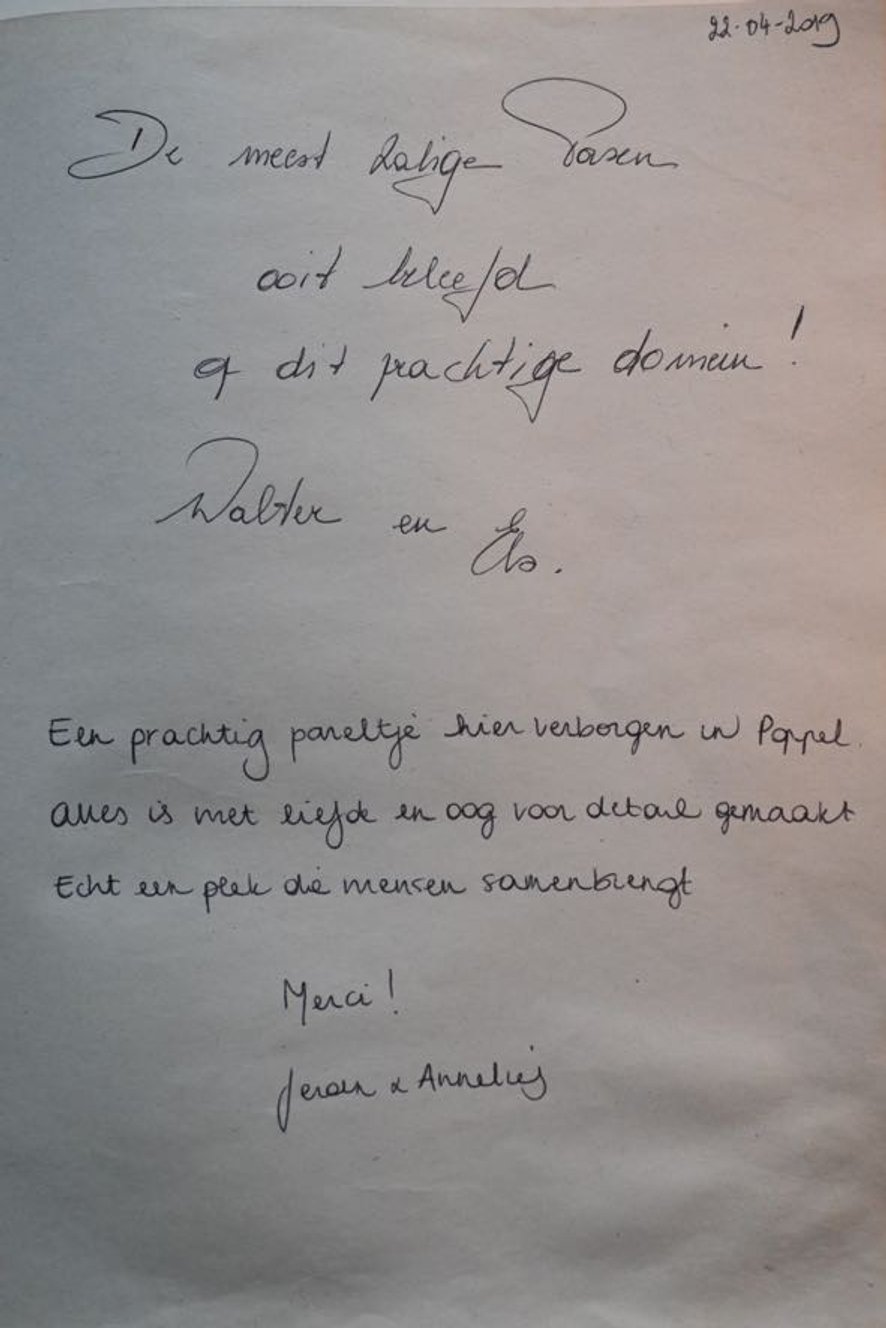 22-04-2019
De meest zalige Pasen
ooit beleefd
op dit prachtige domein!
Walter en Els.
Een prachtig pareltje hier verborgen in Poppel.
Alles is met liefde en oog voor detail gemaakt
Echt een plek die mensen samenbrengt
Merci!
Jeroen & Annelies